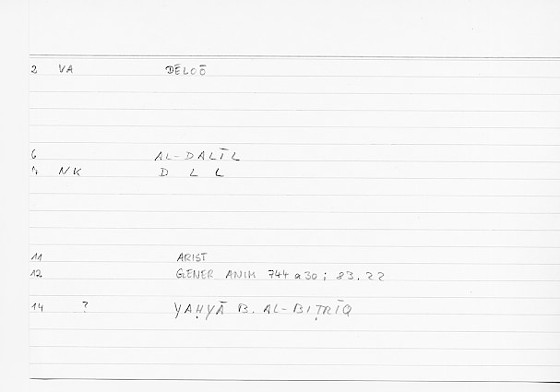 2 VA DĒLOŌ
6 AL-DALĪL
7 NK D L L
11 ARIST
12 GENER ANIM 744 a 30 ; 83.22
14 ? YAḤYĀ B. AL-BIṬRĪQ